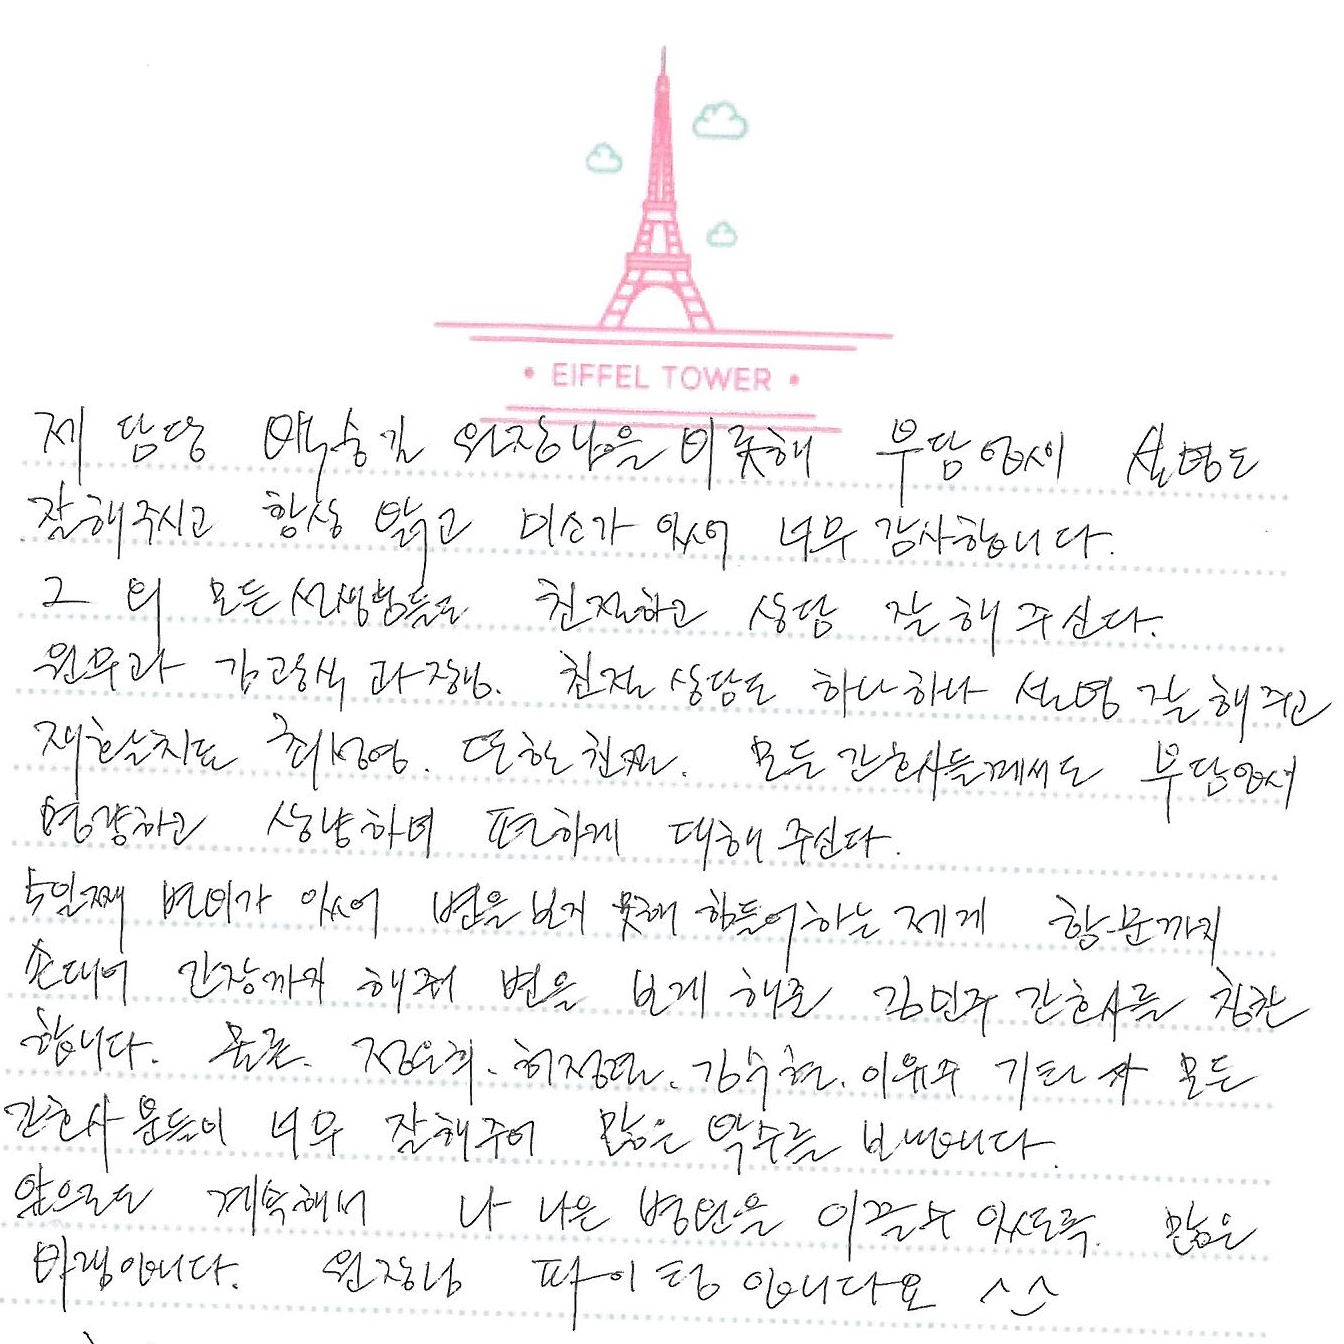 • EIFFEL TOWER •
제 담당 박승길 원장님을 비롯해 부담없이 설명도
잘해주시고 항상 밝고 미소가 있어 너무 감사합니다.
그 외 모든 선생님들도 친절하고 상담 잘 해 주신다.
원무과 김광식 과장님. 친절 상담도 하나하나 설명 잘 해 주고
재활치료 최성영. 또한 친절. 모든 간호사들께서도 부담없이
명랑하고 상냥하며 편하게 대해 주신다.
5일째 변비가 있어 변을 보지 못해 힘들어하는 제게 항문까지
손대어 간장까지 해줘 변을 보게 해준 김민주 간호사를 칭찬
합니다. 물론. 정은희. 허정연. 김수현. 이유주 기타 모든
간호사 분들이 너무 잘해주어 많은 박수를 보냅니다.
앞으로도 계속해서 더 나은 병원을 이끌수 있도록. 많은
바램입니다. 원장님 파이팅입니다요 ^^